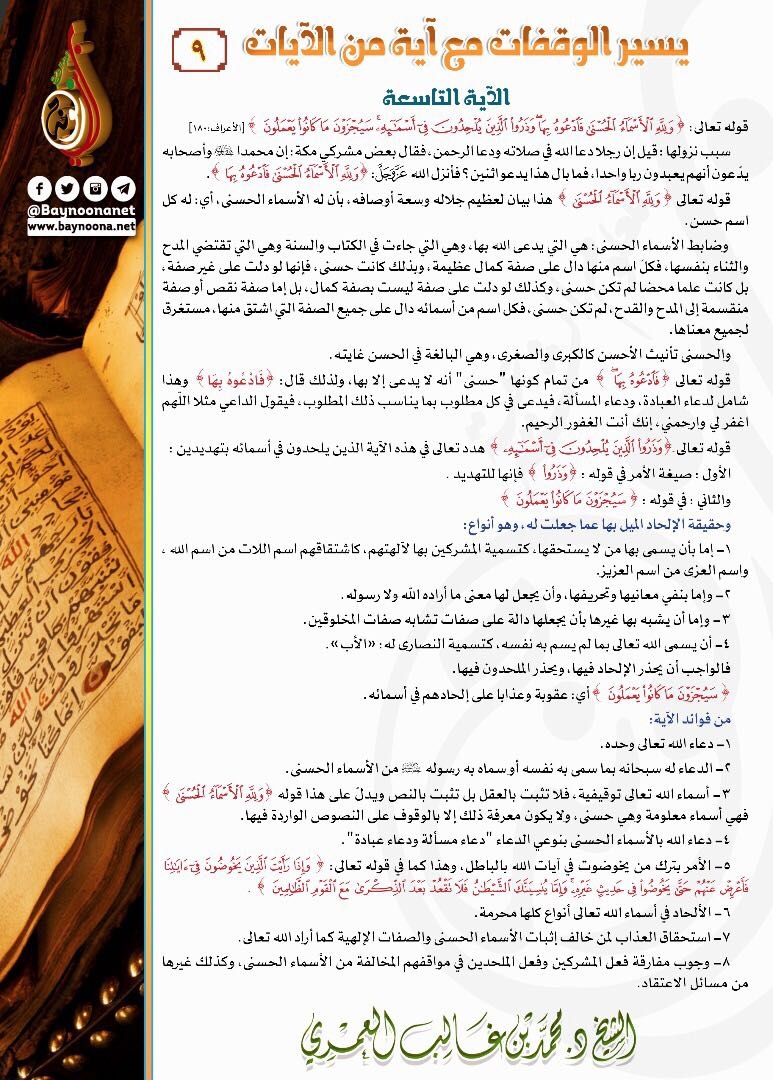 يسير الوقفات مع آية من الآيات
٩
الآية التاسعة
@Baynoonanet
www.baynoona.net
قوله تعالى: ﴿ وَلِلَّهِ الْأَسْمَاءُ الْحُسْنَىٰ فَادْعُوهُ بِهَا ۖ وَذَرُوا الَّذِينَ يُلْحِدُونَ فِي أَسْمَائِهِ ۚ سَيُجْزَوْنَ مَا كَانُوا يَعْمَلُونَ ﴾ [الأعراف: ١٨٠]
سبب نزولها: قيل إن رجلا دعا الله في صلاته ودعا الرحمن، فقال بعض مشركي مكة: إن محمدا ﷺ وأصحابه
يدّعون أنهم يعبدون ربا واحدا، فما بال هذا يدعو اثنين؟ فأنزل الله عَزَّوَجَلَّ: ﴿ وَلِلَّهِ الْأَسْمَاءُ الْحُسْنَىٰ فَادْعُوهُ بِهَا ﴾.
قوله تعالى ﴿ وَلِلَّهِ الْأَسْمَاءُ الْحُسْنَىٰ ﴾ هذا بيان لعظيم جلاله وسعة أوصافه، بأن له الأسماء الحسنى، أي: له كل
اسم حسن.
وضابط الأسماء الحسنى: هي التي يدعى الله بها، وهي التي جاءت في الكتاب والسنة وهي التي تقتضي المدح
والثناء بنفسها، فكل اسم منها دال على صفة كمال عظيمة، وبذلك كانت حسنى، فإنها لو دلت على غير صفة،
بل كانت علما محضا لم تكن حسنى، وكذلك لو دلت على صفة ليست بصفة كمال، بل إما صفة نقص أو صفة
منقسمة إلى المدح والقدح، لم تكن حسنى، فكل اسم من أسمائه دال على جميع الصفة التي اشتق منها، مستغرق
لجميع معناها.
والحسنى تأنيث الأحسن كالكبرى والصغرى، وهي البالغة في الحسن غايته.
قوله تعالى ﴿ فَادْعُوهُ بِهَا ۖ ﴾ من تمام كونها "حسنى" أنه لا يدعى إلا بها، ولذلك قال: ﴿فَادْعُوهُ بِهَا﴾ وهذا
شامل لدعاء العبادة، ودعاء المسألة، فيدعى في كل مطلوب بما يناسب ذلك المطلوب، فيقول الداعي مثلا اللّهم
اغفر لي وارحمني، إنك أنت الغفور الرحيم.
قوله تعالى ﴿ وَذَرُوا الَّذِينَ يُلْحِدُونَ فِي أَسْمَائِهِ ﴾ هدد تعالى في هذه الآية الذين يلحدون في أسمائه بتهديدين :
الأول : صيغة الأمر في قوله : ﴿ وَذَرُوا ﴾ فإنها للتهديد .
والثاني : في قوله : ﴿ سَيُجْزَوْنَ مَا كَانُوا يَعْمَلُونَ ﴾
وحقيقة الإلحاد الميل بها عما جعلت له، وهو أنواع:
١- إما بأن يسمى بها من لا يستحقها، كتسمية المشركين بها لآلهتهم، كاشتقاقهم اسم اللات من اسم الله ،
واسم العزى من اسم العزيز.
٢- وإما بنفي معانيها وتحريفها، وأن يجعل لها معنى ما أراده الله ولا رسوله.
٣- وإما أن يشبه بها غيرها بأن يجعلها دالة على صفات تشابه صفات المخلوقين.
٤- أن يسمى الله تعالى بما لم يسم به نفسه، كتسمية النصارى له: «الأب».
فالواجب أن يحذر الإلحاد فيها، ويحذر الملحدون فيها.
﴿ سَيُجْزَوْنَ مَا كَانُوا يَعْمَلُونَ ﴾ أي: عقوبة وعذابا على إلحادهم في أسمائه.
من فوائد الآية:
١- دعاء الله تعالى وحده.
٢- الدعاء له سبحانه بما سمى به نفسه أو سماه به رسوله ﷺ من الأسماء الحسنى.
٣- أسماء الله تعالى توقيفية، فلا تثبت بالعقل بل تثبت بالنص ويدل على هذا قوله ﴿ وَلِلَّهِ الْأَسْمَاءُ الْحُسْنَىٰ ﴾
فهي أسماء معلومة وهي حسنى، ولا يكون معرفة ذلك إلا بالوقوف على النصوص الواردة فيها.
٤- دعاء الله بالأسماء الحسنى بنوعي الدعاء "دعاء مسألة ودعاء عبادة".
٥- الأمر بترك من يخوضوت في آيات الله بالباطل، وهذا كما في قوله تعالى: ﴿ وَإِذَا رَأَيْتَ الَّذِينَ يَخُوضُونَ فِي آيَاتِنَا
فَأَعْرِضْ عَنْهُمْ حَتَّىٰ يَخُوضُوا فِي حَدِيثٍ غَيْرِهِ ۚ وَإِمَّا يُنسِيَنَّكَ الشَّيْطَانُ فَلَا تَقْعُدْ بَعْدَ الذِّكْرَىٰ مَعَ الْقَوْمِ الظَّالِمِينَ ﴾ .
٦- الألحاد في أسماء الله تعالى أنواع كلها محرمة.
٧- استحقاق العذاب لمن خالف إثبات الأسماء الحسنى والصفات الإلهية كما أراد الله تعالى.
٨- وجوب مفارقة فعل المشركين وفعل الملحدين في مواقفهم المخالفة من الأسماء الحسنى، وكذلك غيرها
من مسائل الاعتقاد.
الشيخ د. محمد بن غالب العمري